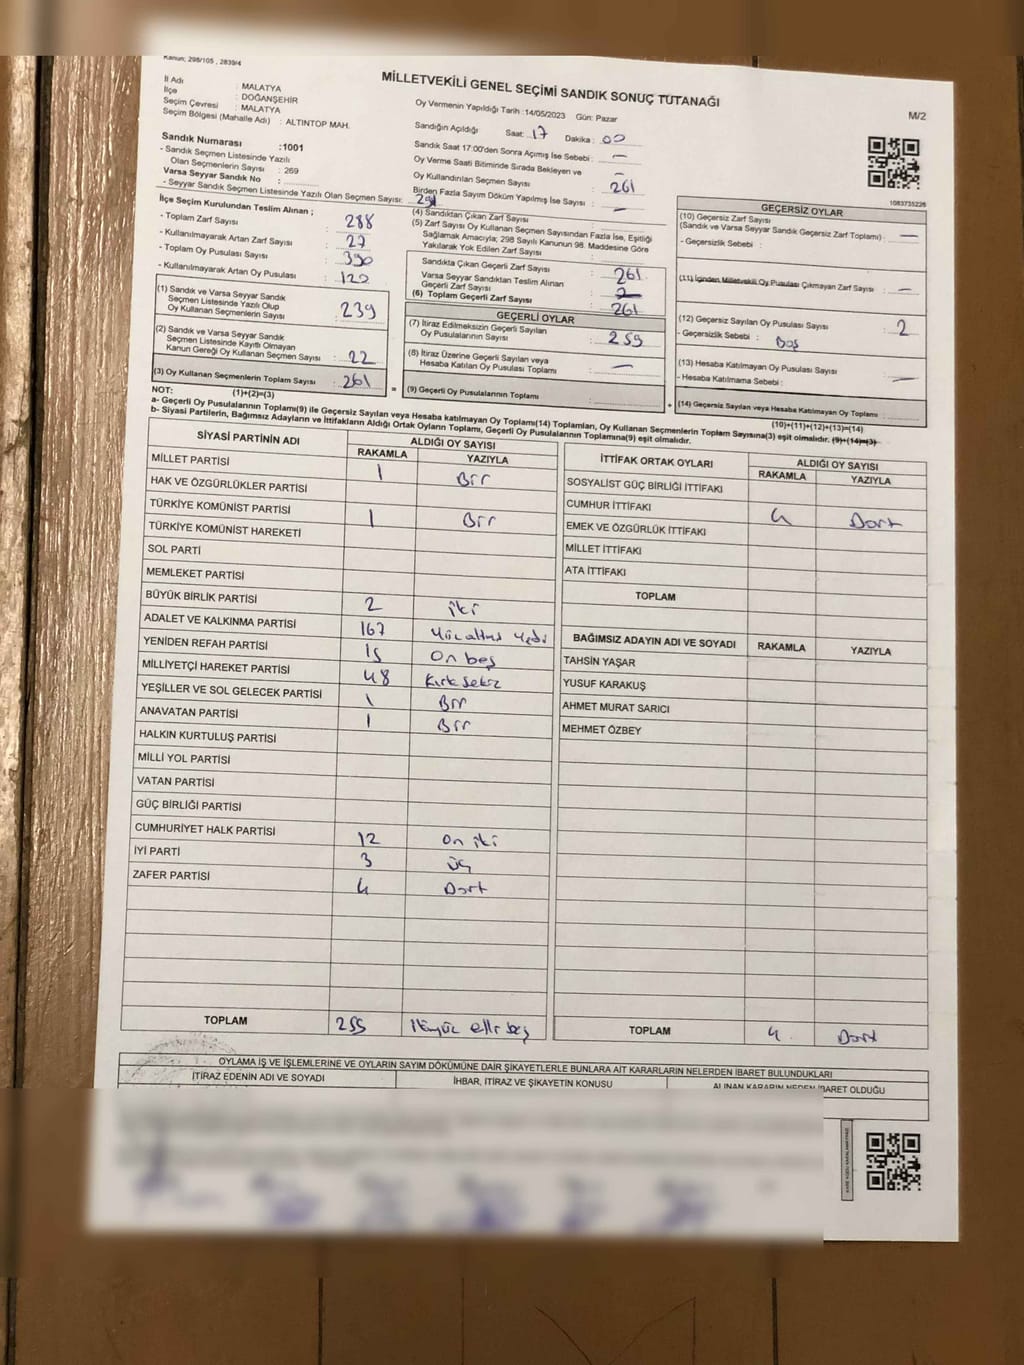 Kanun; 298/105 , 2839/4
MİLLETVEKİLİ GENEL SEÇİMİ SANDIK SONUÇ TUTANAĞI
M/2
İl Adı : MALATYA
İlçe : DOĞANŞEHİR
Seçim Çevresi : MALATYA
Seçim Bölgesi (Mahalle Adı) : ALTINTOP MAH.
Oy Vermenin Yapıldığı Tarih :14/05/2023 Gün: Pazar
Sandığın Açıldığı Saat: 17 Dakika : 00
Sandık Saat 17:00'den Sonra Açımış İse Sebebi : —
Oy Verme Saati Bitiminde Sırada Bekleyen ve
Oy Kullandırılan Seçmen Sayısı : —
261
Birden Fazla Sayım Döküm Yapılmış İse Sayısı : —
Sandık Numarası :1001
- Sandık Seçmen Listesinde Yazılı
Olan Seçmenlerin Sayısı : 269
Varsa Seyyar Sandık No :
- Seyyar Sandık Seçmen Listesinde Yazılı Olan Seçmen Sayısı:
İlçe Seçim Kurulundan Teslim Alınan ;
- Toplam Zarf Sayısı : 288
- Kullanılmayarak Artan Zarf Sayısı : 27
- Toplam Oy Pusulası Sayısı : 390
- Kullanılmayarak Artan Oy Pusulası : 120
(1) Sandık ve Varsa Seyyar Sandık
Seçmen Listesinde Yazılı Olup
Oy Kullanan Seçmenlerin Sayısı : 239
(2) Sandık ve Varsa Seyyar Sandık
Seçmen Listesinde Kayıtlı Olmayan
Kanun Gereği Oy Kullanan Seçmen Sayısı : 22
(3) Oy Kullanan Seçmenlerin Toplam Sayısı : 261
(1)+(2)=(3)
(4) Sandıktan Çıkan Zarf Sayısı
(5) Zarf Sayısı Oy Kullanan Seçmen Sayısından Fazla İse, Eşitliği
Sağlamak Amacıyla; 298 Sayılı Kanunun 98. Maddesine Göre
Yakılarak Yok Edilen Zarf Sayısı :
Sandıkta Çıkan Geçerli Zarf Sayısı : 261
Varsa Seyyar Sandıktan Teslim Alınan
Geçerli Zarf Sayısı :
(6) Toplam Geçerli Zarf Sayısı : 261
GEÇERLİ OYLAR
(7) İtiraz Edilmeksizin Geçerli Sayılan
Oy Pusulalarının Sayısı : 259
(8) İtiraz Üzerine Geçerli Sayılan veya
Hesaba Katılan Oy Pusulası Toplamı : —
(9) Geçerli Oy Pusulalarının Toplamı :
1083735226
GEÇERSİZ OYLAR
(10) Geçersiz Zarf Sayısı
(Sandık ve Varsa Seyyar Sandık Geçersiz Zarf Toplamı) : —
- Geçersizlik Sebebi :
(11) İçinden Milletvekili Oy Pusulası Çıkmayan Zarf Sayısı : —
(12) Geçersiz Sayılan Oy Pusulası Sayısı : 2
- Geçersizlik Sebebi : Boş
(13) Hesaba Katılmayan Oy Pusulası Sayısı
- Hesaba Katılmama Sebebi : —
(14) Geçersiz Sayılan veya Hesaba Katılmayan Oy Toplamı :
(10)+(11)+(12)+(13)=(14)
NOT:
a- Geçerli Oy Pusulalarının Toplamı(9) ile Geçersiz Sayılan veya Hesaba katılmayan Oy Toplamı(14) Toplamları, Oy Kullanan Seçmenlerin Toplam Sayısına(3) eşit olmalıdır. (9)+(14)=(3)
b- Siyasi Partilerin, Bağımsız Adayların ve İttifakların Aldığı Ortak Oyların Toplamı, Geçerli Oy Pusulalarının Toplamına(9) eşit olmalıdır.
SİYASİ PARTİNİN ADI ALDIĞI OY SAYISI
RAKAMLA YAZIYLA
MİLLET PARTİSİ 1 Bir
HAK VE ÖZGÜRLÜKLER PARTİSİ
TÜRKİYE KOMÜNİST PARTİSİ 1 Bir
TÜRKİYE KOMÜNİST HAREKETİ
SOL PARTİ
MEMLEKET PARTİSİ
BÜYÜK BİRLİK PARTİSİ 2 iki
ADALET VE KALKINMA PARTİSİ 167 Yüz altmış yedi
YENİDEN REFAH PARTİSİ 15 On beş
MİLLİYETÇİ HAREKET PARTİSİ 48 Kırk sekiz
YEŞİLLER VE SOL GELECEK PARTİSİ 1 Bir
ANAVATAN PARTİSİ 1 Bir
HALKIN KURTULUŞ PARTİSİ
MİLLİ YOL PARTİSİ
VATAN PARTİSİ
GÜÇ BİRLİĞİ PARTİSİ
CUMHURİYET HALK PARTİSİ 12 On iki
İYİ PARTİ 3 üç
ZAFER PARTİSİ 4 Dört
TOPLAM 255 İkiyüz elli beş
İTTİFAK ORTAK OYLARI ALDIĞI OY SAYISI
RAKAMLA YAZIYLA
SOSYALİST GÜÇ BİRLİĞİ İTTİFAKI
CUMHUR İTTİFAKI 4 Dört
EMEK VE ÖZGÜRLÜK İTTİFAKI
MİLLET İTTİFAKI
ATA İTTİFAKI
TOPLAM
BAĞIMSIZ ADAYIN ADI VE SOYADI RAKAMLA YAZIYLA
TAHSİN YAŞAR
YUSUF KARAKUŞ
AHMET MURAT SARICI
MEHMET ÖZBEY
TOPLAM 4 Dört
OYLAMA İŞ VE İŞLEMLERİNE VE OYLARIN SAYIM DÖKÜMÜNE DAİR ŞİKAYETLERLE BUNLARA AİT KARARLARIN NELERDEN İBARET BULUNDUKLARI
İTİRAZ EDENİN ADI VE SOYADI İHBAR, İTİRAZ VE ŞİKAYETİN KONUSU ALINAN KARARIN NEDEN İBARET OLDUĞU